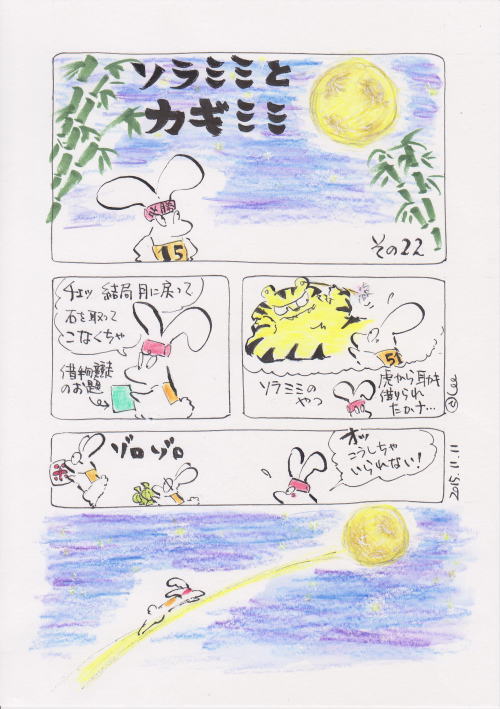 ソラミミと
カギミミ
必勝
15
その22
チェッ 結局 月に戻って
石を取って
こなくちゃ
借物競走
のお題
51
ソラミミの
やつ
虎から耳かき
借りられ
たかナ…
ゾロゾロ
オッ
こうしちゃ
いられない!
2015.11.11